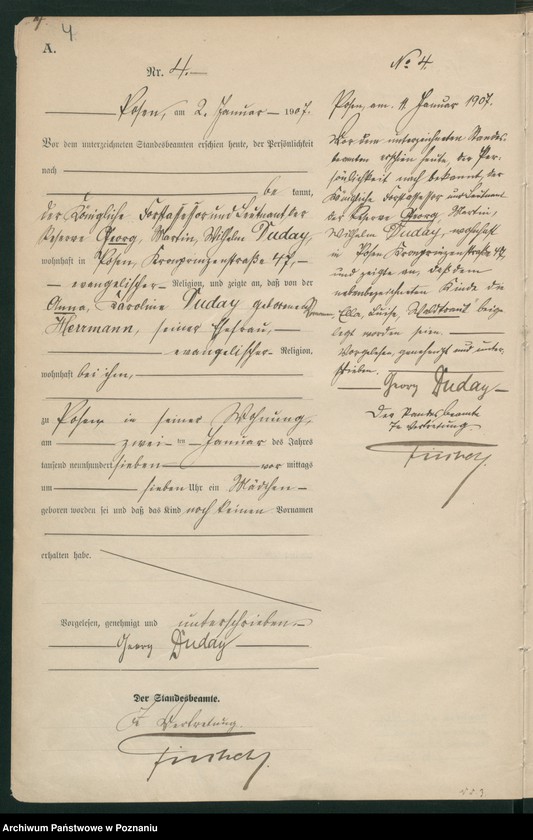 4
A.
Nr. 4.
Posen, am 2. Januar 1907.
Vor dem unterzeichneten Standesbeamten erschien heute, der Persönlichkeit
nach
be kannt,
der Königliche Forstassessor und Leutnant der
Reserve Georg, Martin, Wilhelm Duday,
wohnhaft in Posen, Kronprinzenstraße 47,
evangelischer Religion, und zeigte an, daß von der
Anna, Karoline Duday geborenen
Herrmann, seiner Ehefrau,
evangelischer Religion,
wohnhaft bei ihm,
zu Posen in seiner Wohnung,
am zwei ten Januar des Jahres
tausend neunhundert sieben vor mittags
um sieben Uhr ein Mädchen
geboren worden sei und daß das Kind noch keinen Vornamen
erhalten habe.
Vorgelesen, genehmigt und unterschrieben
Georg Duday
Der Standesbeamte.
In Vertretung.
No 4.
Posen, am Januar 1907.
Vor dem unterzeichneten Standes-
beamten erschien heute, der Per-
sönlichkeit nach bekannt, der
Königliche Forstassessor und Leutnant
der Reserve Georg, Martin,
Wilhelm Duday, wohnhaft
in Posen Kronprinzenstraße 47,
und zeigte an, daß dem
nebenbezeichneten Kinde die
Vornamen Ella, Luise, Waldtraut beige-
legt worden seien.
Vorgelesen, genehmigt und unter-
schrieben.
Georg Duday
Der Standesbeamte
In Vertretung
Archiwum Państwowe w Poznaniu